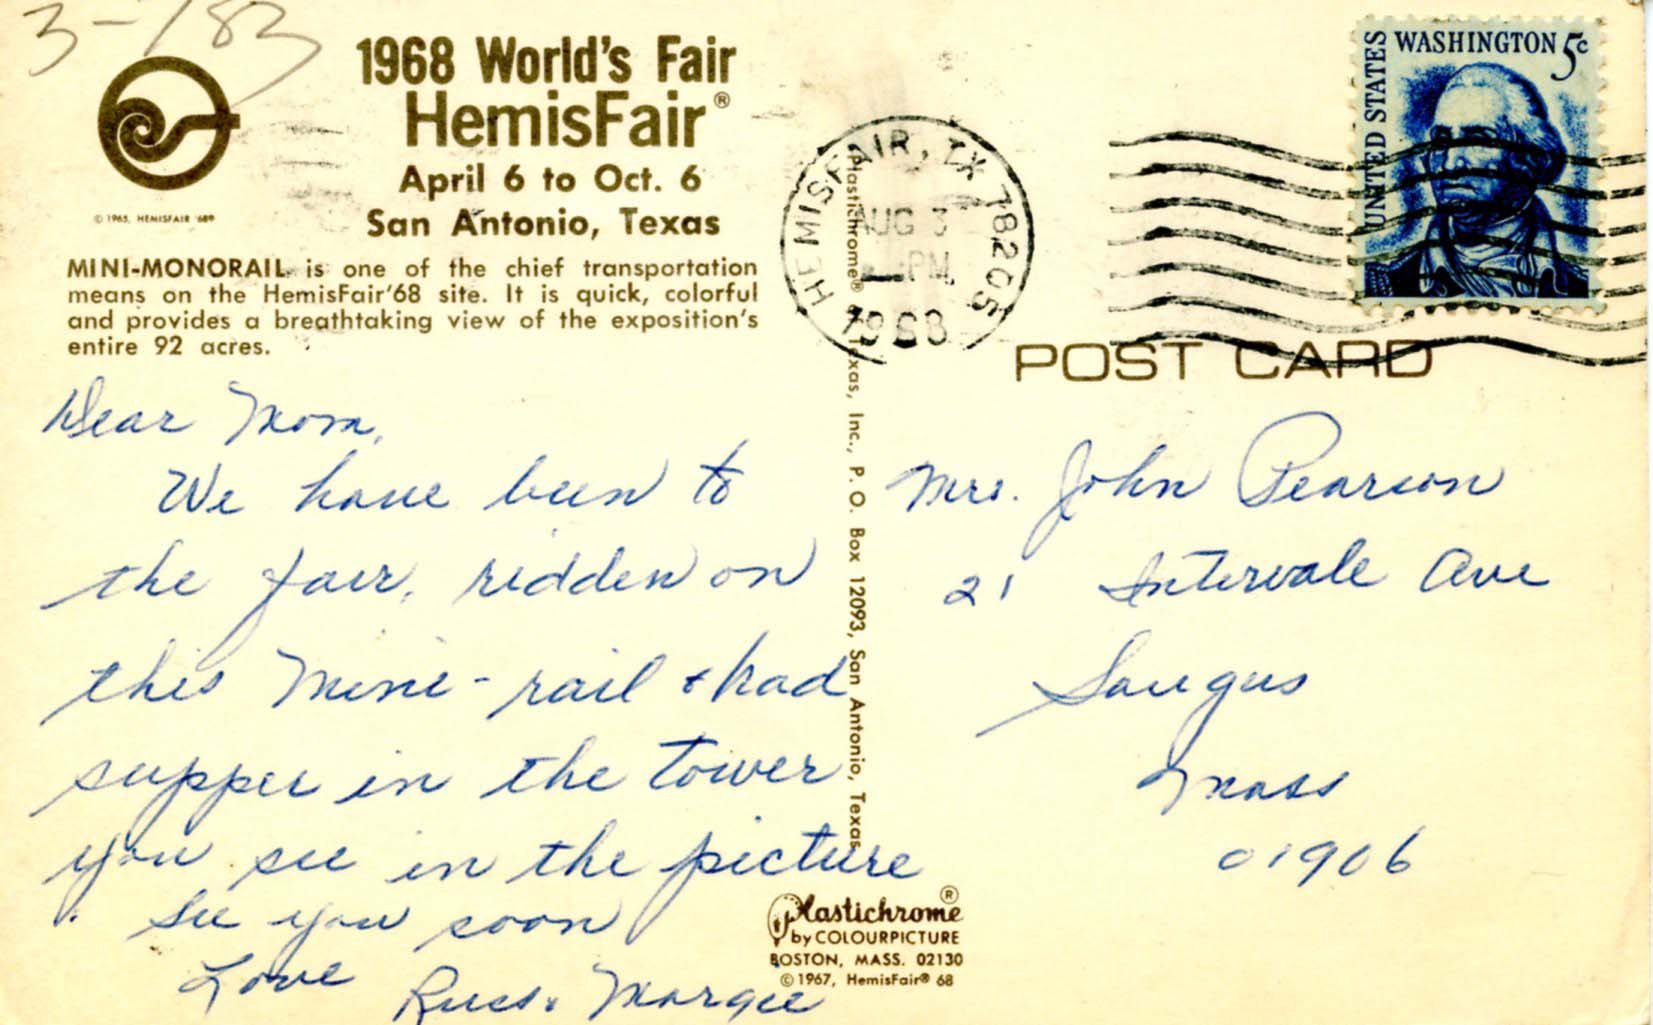 3-183
1968 World's Fair
HemisFair®
April 6 to Oct. 6
San Antonio, Texas
© 1965, HEMISFAIR '68®
MINI-MONORAIL is one of the chief transportation
means on the HemisFair'68 site. It is quick, colorful
and provides a breathtaking view of the exposition's
entire 92 acres.
Dear Mom,
We have been to
the fair, ridden on
this mini-rail & had
supper in the tower
you see in the picture
See you soon
Love
Russ & Margie
Plastichrome® of Texas, Inc., P. O. Box 12093, San Antonio, Texas
Plastichrome®
by COLOURPICTURE
BOSTON, MASS. 02130
© 1967, HemisFair® 68
HEMISFAIR, TX 78205
AUG 3
PM
1968
UNITED STATES
WASHINGTON 5c
POST CARD
Mrs. John Pearson
21 Intervale Ave
Saugus
Mass
01906